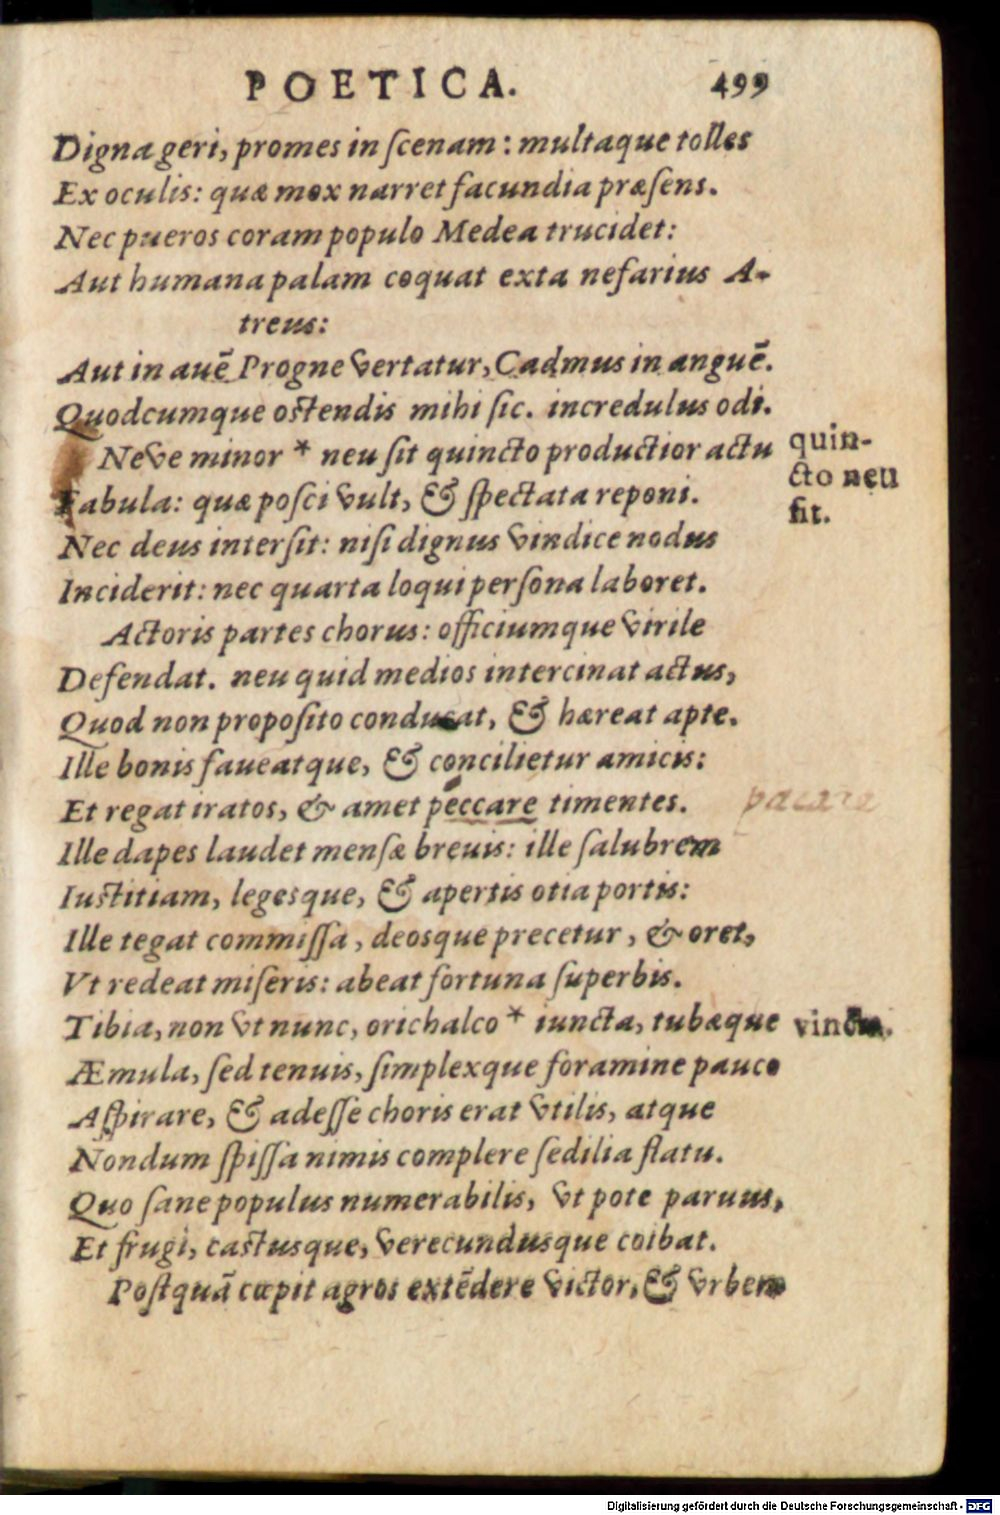 POETICA. 499
Digna geri, promes in ſcenam: multaque tolles
Ex oculis: quæ mox narret facundia præſens.
Nec pueros coram populo Medea trucidet:
Aut humana palam coquat exta nefarius A-
treus:
Aut in auē Progne vertatur, Cadmus in anguē.
Quodcumque ostendis mihi ſic. incredulus odi.
Neve minor * neu ſit quincto productior actu
quin-
cto neu
ſit.
Fabula: quæ poſci vult, & ſpectata reponi.
Nec deus interſit: niſi dignus vindice nodus
Inciderit: nec quarta loqui perſona laboret.
Actoris partes chorus: officiumque virile
Defendat. neu quid medios intercinat actus,
Quod non propoſito conducat, & hæreat apte.
Ille bonis faueatque, & concilietur amicis:
Et regat iratos, & amet peccare timentes. pacare
Ille dapes laudet menſæ breuis: ille ſalubrem
Iustitiam, legesque, & apertis otia portis:
Ille tegat commiſſa, deosque precetur, & oret,
Vt redeat miſeris: abeat fortuna ſuperbis.
Tibia, non vt nunc, orichalco * iuncta, tubæque vincta.
Æmula, ſed tenuis, ſimplexque foramine pauco
Aſpirare, & adeſſe choris erat vtilis, atque
Nondum ſpiſſa nimis complere ſedilia flatu.
Quo ſane populus numerabilis, vt pote paruus,
Et frugi, castusque, verecundusque coibat.
Poſtquā cœpit agros extēdere victor, & vrbem
Digitalisierung gefördert durch die Deutsche Forschungsgemeinschaft - DFG